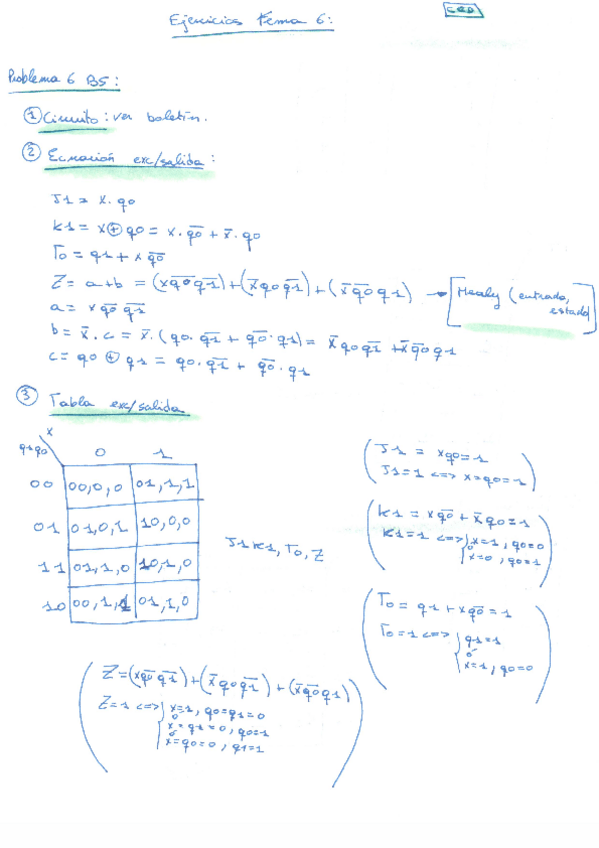 CED
Ejercicios Tema 6:
Problema 6 B5:
① Circuito: ver boletín.
② Ecuación exc/salida:
J1 = x·q0
K1 = x⊕q0 = x·q̅0̅ + x̅·q0
T0 = q1 + x q̅0̅
Z = a+b = (x q̅0̅ q̅1̅) + (x̅ q0 q̅1̅) + (x̅ q̅0̅ q1) → [Mealy (entrada,
estado]
a = x q̅0̅ q̅1̅
b = x̅·c = x̅·(q0·q̅1̅ + q̅0̅·q1) = x̅ q0 q̅1̅ + x̅ q̅0̅ q1
c = q0 ⊕ q1 = q0·q̅1̅ + q̅0̅·q1
③ Tabla exc/salida
x
q1q0 0 1
00 00,0,0 01,1,1
01 01,0,1 10,0,0
11 01,1,0 10,1,0
10 00,1,1 01,1,0
J1K1, T0, Z
(J1 = xq0 = 1
J1=1 <=> x=q0=1)
(K1 = x q̅0̅ + x̅ q0 = 1
K1=1 <=> {x=1, q0=0
o
x=0, q0=1)
(T0 = q1 + x q̅0̅ = 1
T0=1 <=> {q1=1
o
x=1, q0=0)
(Z = (x q̅0̅ q̅1̅) + (x̅ q0 q̅1̅) + (x̅ q̅0̅ q1)
Z=1 <=> {x=1, q0=q1=0
o
x=q1=0, q0=1
o
x=q0=0, q1=1)